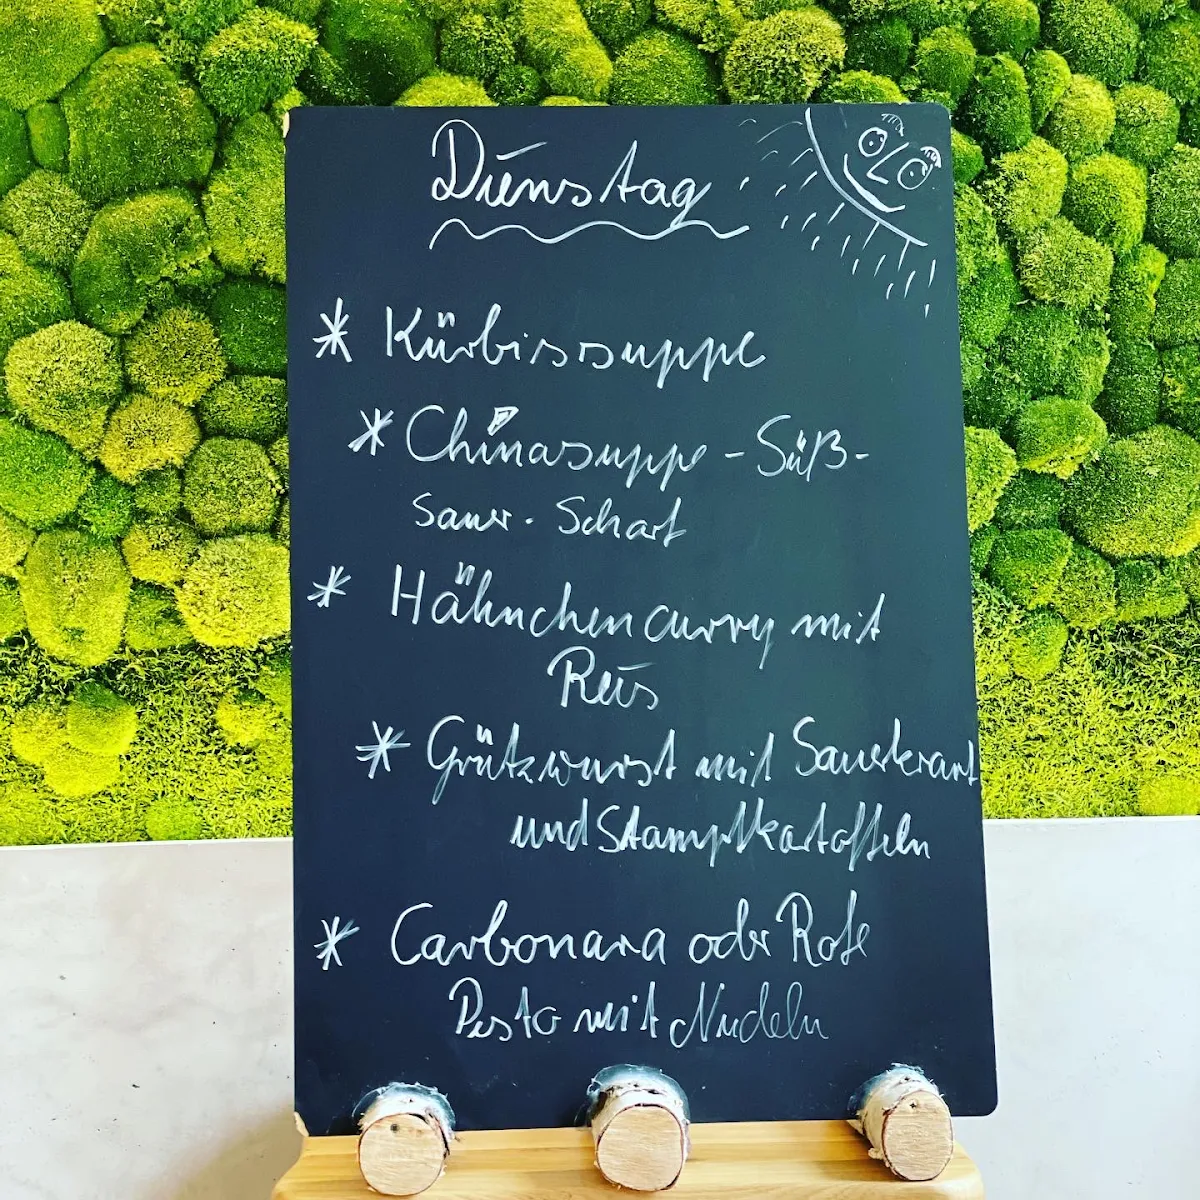 Dienstag
* Kürbissuppe
* Chinasuppe - Süß-
Sauer - Scharf
* Hähnchencurry mit
Reis
* Grützwurst mit Sauerkraut
und Stampfkartoffeln
* Carbonara oder Rote
Pesto mit Nudeln